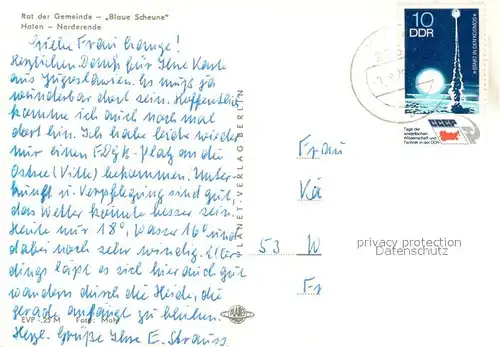 Rat der Gemeinde – „Blaue Scheune"
Hafen – Norderende
Liebe Frau Lange!
Herzlichen Dank für Ihre Karte
aus Jugoslawien. Es muß ja
wunderbar dort sein. Hoffentlich
komme ich auch noch mal
dort hin. Ich habe leider wieder
nur einen FDGB-Platz an die
Ostsee (Vitte) bekommen. Unter-
kunft u. Verpflegung sind gut,
das Wetter könnte besser sein.
Heute nur 18°, Wasser 16° und
dabei noch sehr windig. Aller-
dings läßt es sich hier auch gut
wandern durch die Heide, die
gerade anfängt zu blühen.
Herzl. Grüße Ihre E. Strauss.
EVP –,25 M Foto: Mohr
PLANET-VERLAG BERLIN
PLANET
10
DDR
START IN DEN KOSMOS
CCCP
Tage der
sowjetischen
Wissenschaft und
Technik in der DDR
Frau
Kä
53 W
privacy protection
Datenschutz